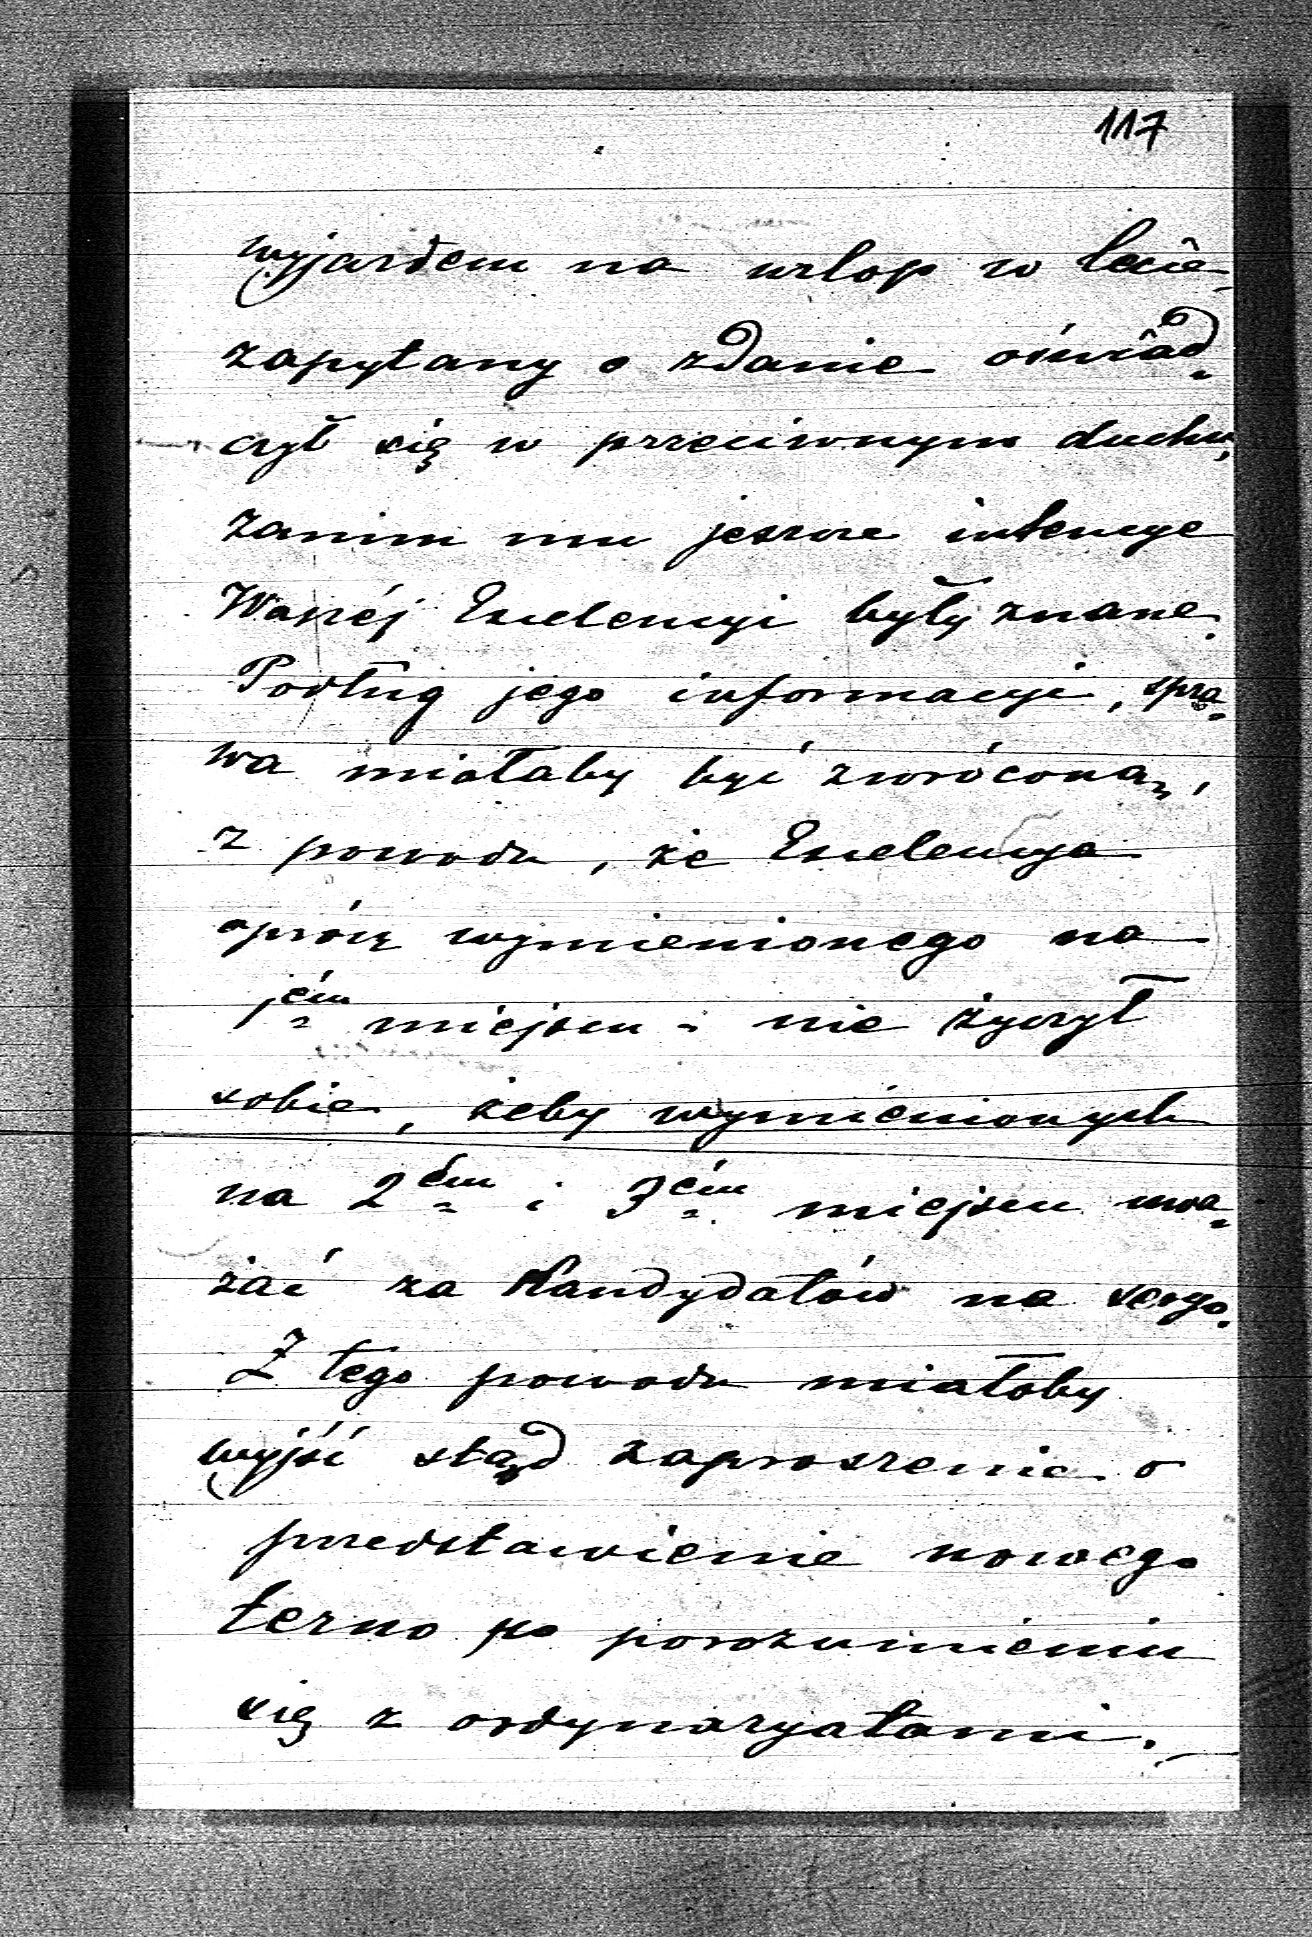 117
wyjazdem na urlop w lecie
zapytany o zdanie oświad-
czył się w przeciwnym duchu,
zanim mu jeszcze intencye
Waszéj Excelencyi były znane.
Podług jego informacyi, spra-
wa miałaby być zwróconą,
z powodu, że Excelencya
oprócz wymienionego na
1ém miejscu - nie życzył
sobie, żeby wymienionych
na 2ém i 3ém miejscu uwa-
żać za Kandydatów na
Z tego powodu miałoby
wyjść stąd zaproszenie o
przedstawienie nowego
terno po porozumieniu
się z ordynaryatami.